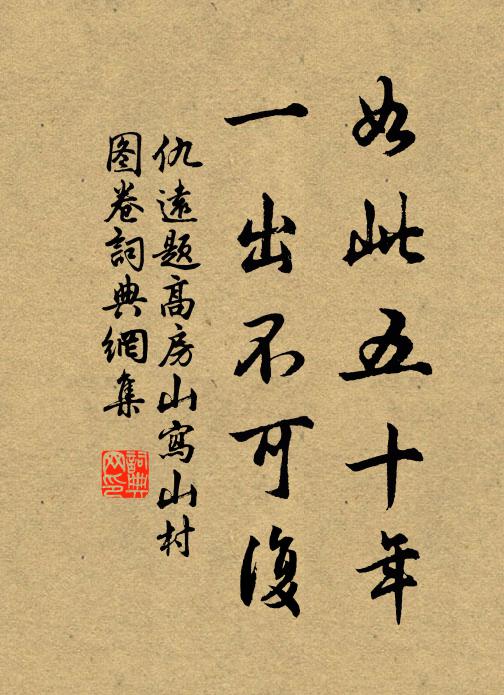 如此五十年
一出不可復
仇遠題高房山寫山村
图卷詞典網集
詞典网印